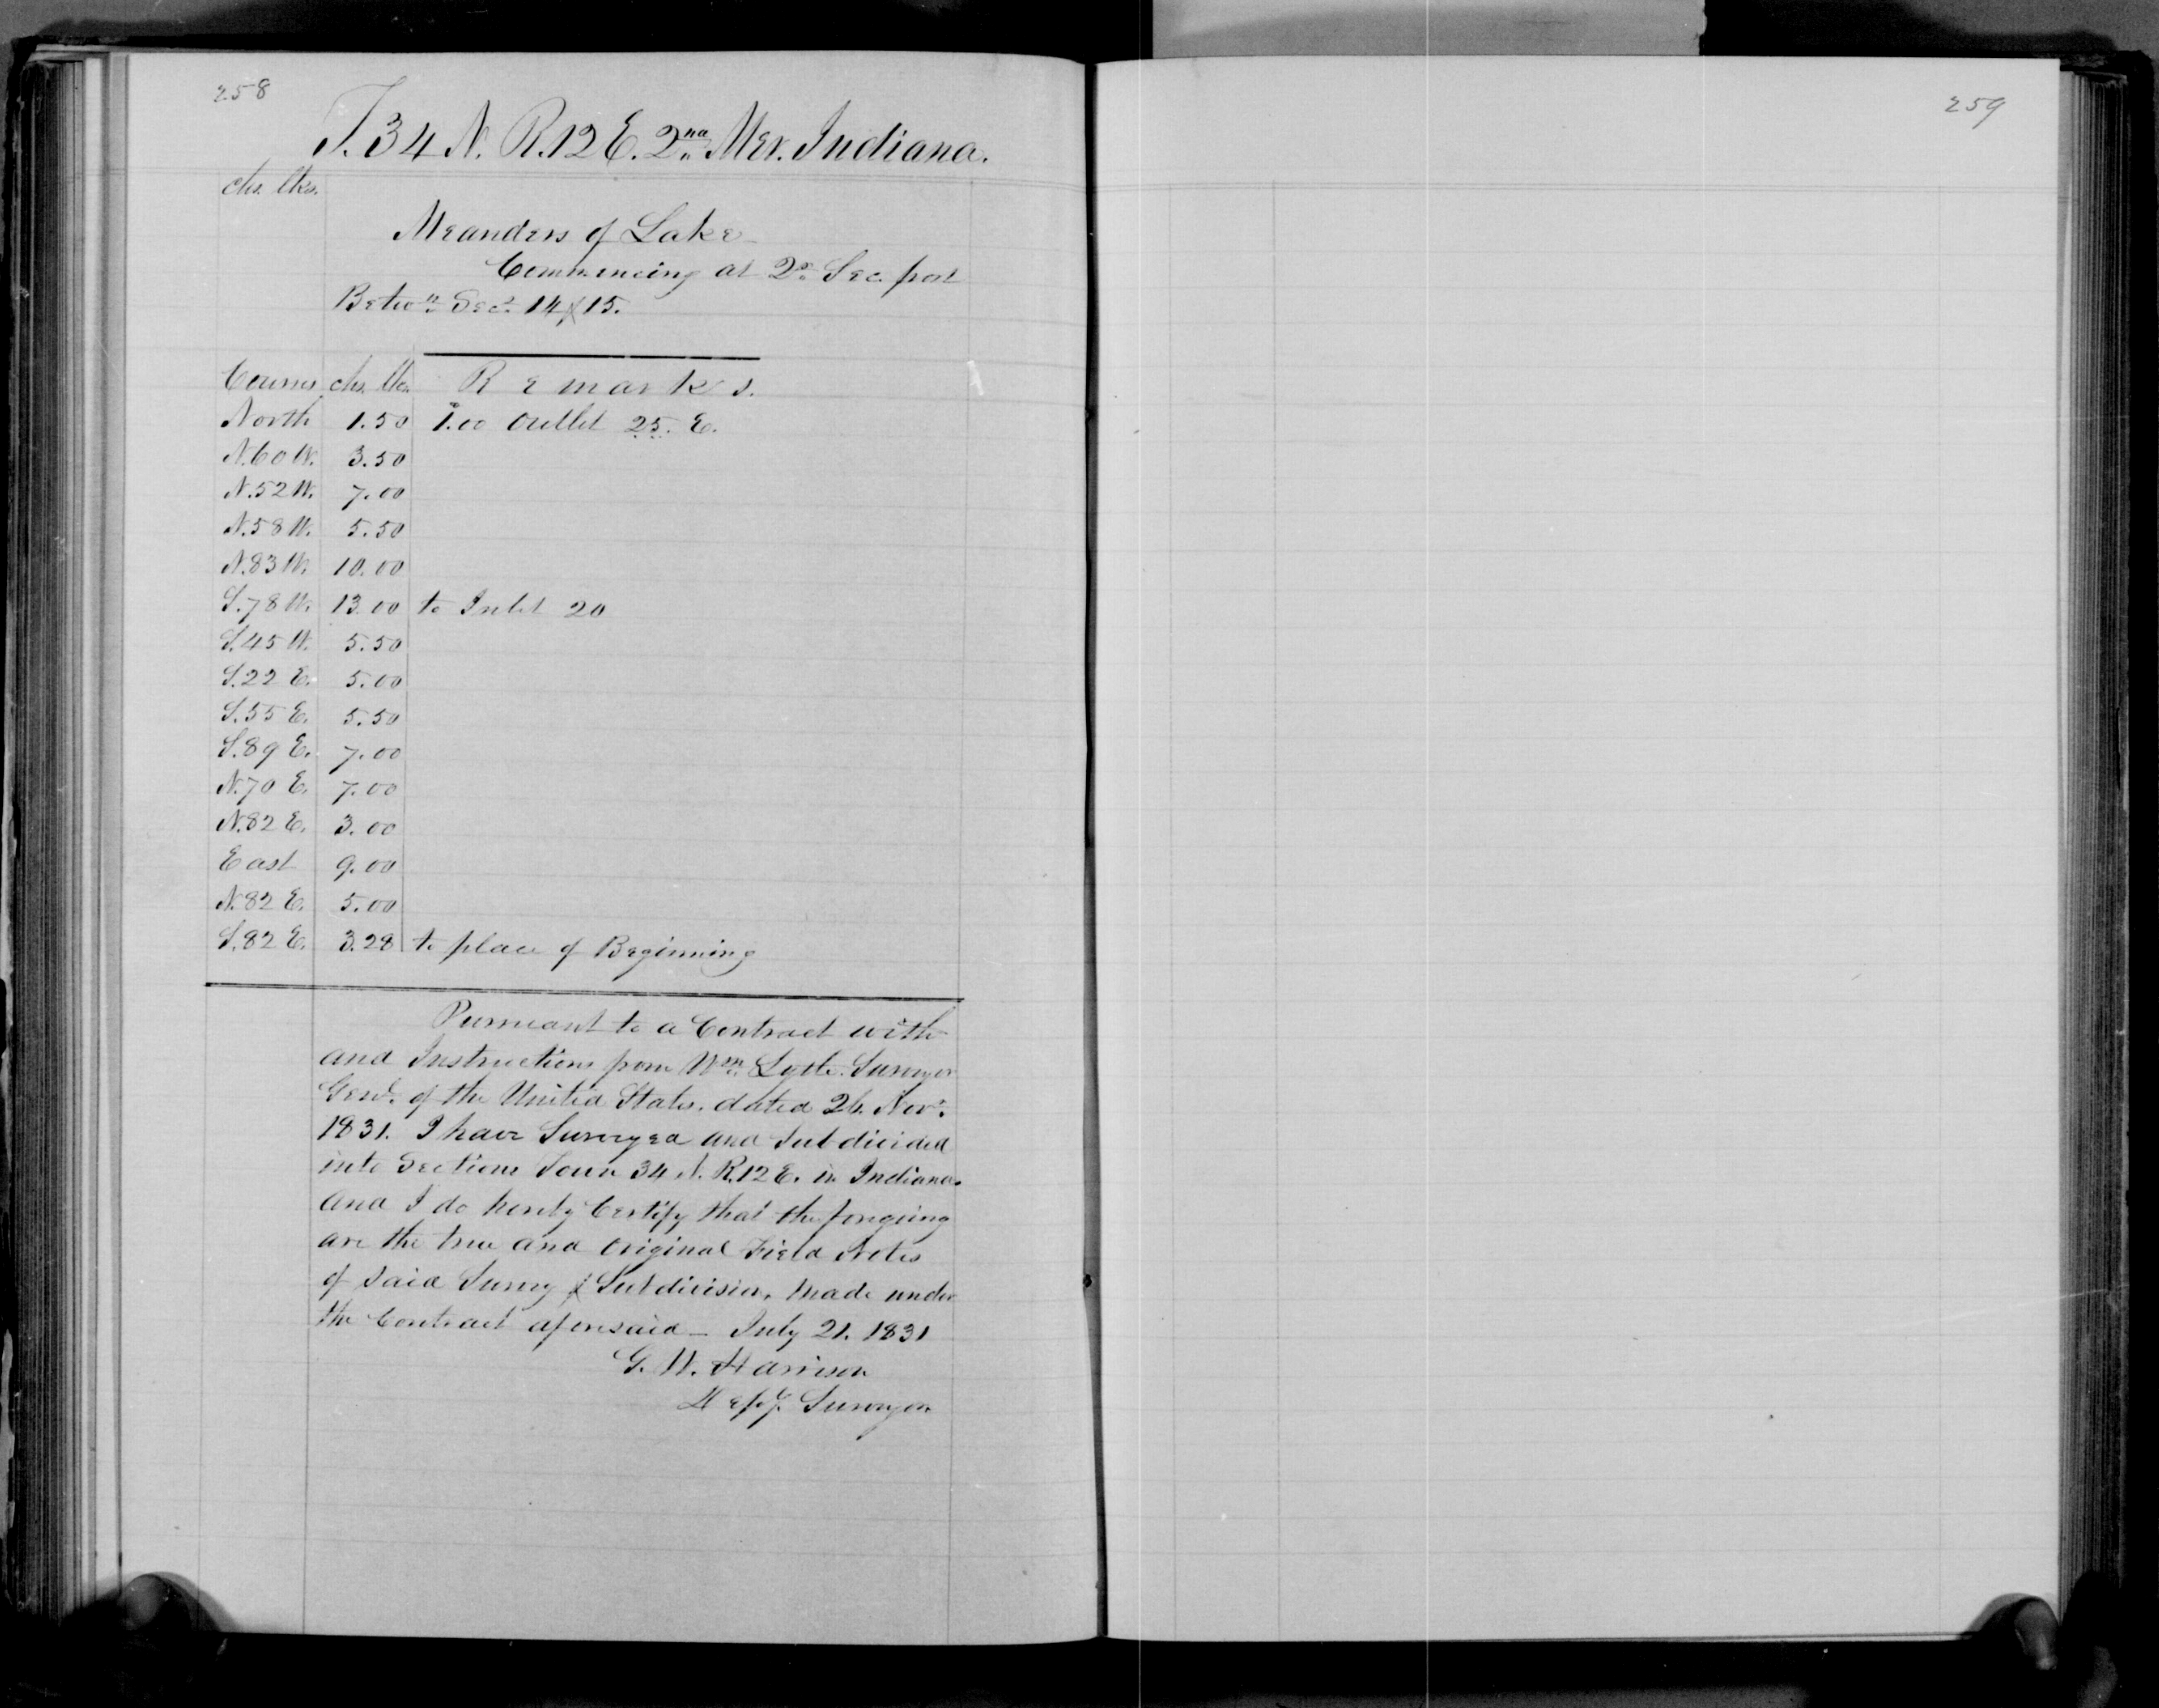 258
T. 34 N. R. 12 E. 2nd Mer. Indiana.
chs. lks.
Meanders of Lake
Commencing at 2d Sec. post
Betwn Secs 14 & 15.
Courses chs. lks. Remarks.
North 1.50 1.00 Outlet 25. E.
N. 60 W. 3.50
N. 52 W. 7.00
N. 58 W. 5.50
N. 83 W. 10.00
S. 78 W. 13.00 to Inlet 20
S. 45 W. 5.50
S. 22 E. 5.00
S. 55 E. 5.50
S. 89 E. 7.00
N. 70 E. 7.00
N. 82 E. 3.00
East 9.00
N. 82 E. 5.00
S. 82 E. 3.28 to place of Beginning
Pursuant to a Contract with
and Instructions from Wm. Lytle. Surveyor
Genl. of the United States. dated 26. Novr.
1831. I have Surveyed and Subdivided
into Sections Town 34 N. R. 12 E. in Indiana.
and I do hereby Certify that the foregoing
are the true and Original Field Notes
of said Survey & Subdivision, Made under
the Contract aforesaid — July 21. 1831
G. W. Harrison
Depy. Surveyor
259